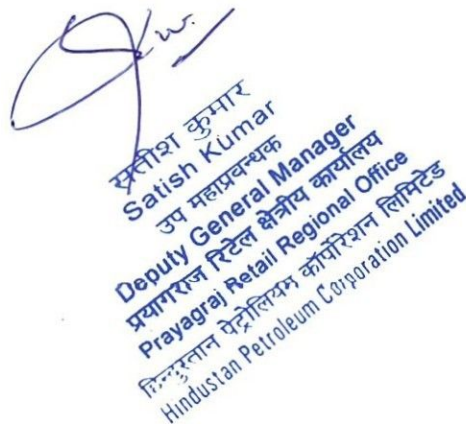 सतीश कुमार
Satish Kumar
उप महाप्रबन्धक
Deputy General Manager
प्रयागराज रिटेल क्षेत्रीय कार्यालय
Prayagraj Retail Regional Office
हिन्दुस्तान पेट्रोलियम कॉर्पोरेशन लिमिटेड
Hindustan Petroleum Corporation Limited